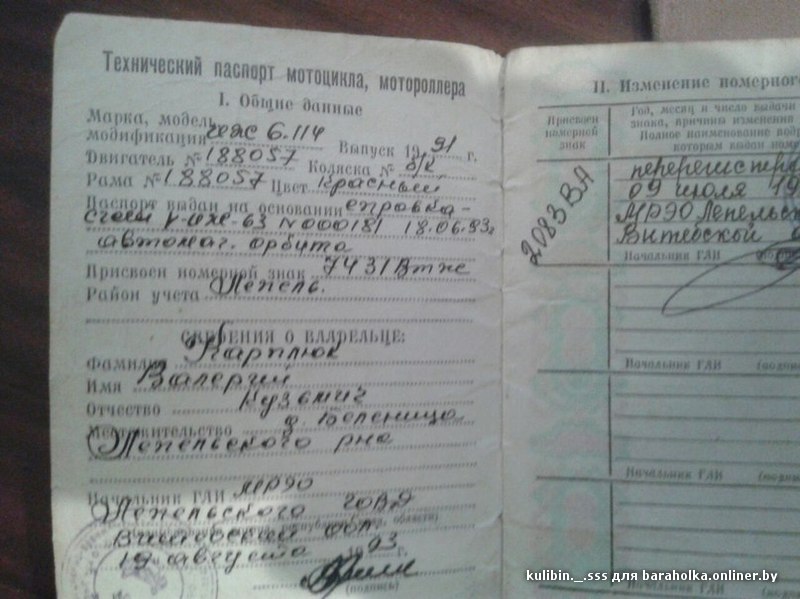 Технический паспорт мотоцикла, мотороллера
I. Общие данные
Марка, модель,
модификация иж 6.114 Выпуск 1991 г.
Двигатель № 188057 Коляска № б/к
Рама № 188057 Цвет Красный
Паспорт выдан на основании справка-
счет 18.06.93г
автомаг. орбита
Присвоен номерной знак 7431 Втже
Район учета Лепель.
СВЕДЕНИЯ О ВЛАДЕЛЬЦЕ:
Фамилия Карплюк
Имя Валерий
Отчество Кузьмич
Местожительство д.
Лепельского рна
Начальник ГАИ МРЭО
Лепельского ГОВД
Витебской обл
19 августа 1993 г.
(подпись)
II. Изменение номерного
Присвоен
номерной
знак
Год, месяц и число выдачи
знака, причины изменения
Полное наименование
которым выдан
2083 ВА
09 июля 19
МРЭО Лепельск
Витебской о
Начальник ГАИ
Начальник ГАИ (подпи
Начальник ГАИ (подп
kulibin._.sss для baraholka.onliner.by